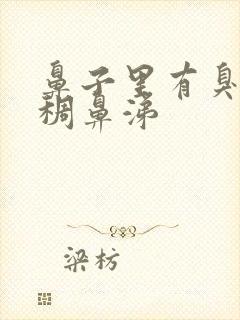 鼻子里有臭
稠鼻涕
梁枋